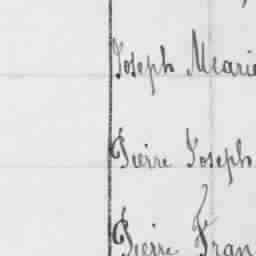 Joseph Marie
Pierre Joseph
Pierre Fran